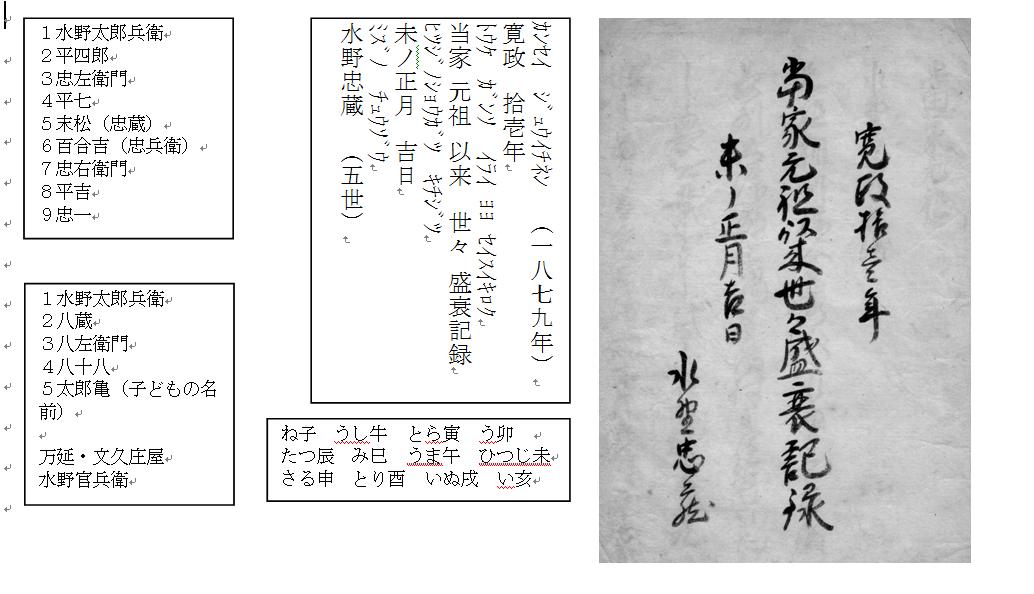 １水野太郎兵衛
２平四郎
３忠左衛門
４平七
５末松（忠蔵）
６百合吉（忠兵衛）
７忠右衛門
８平吉
９忠一
１水野太郎兵衛
２八蔵
３八左衛門
４八十八
５太郎亀（子どもの名
前）
万延・文久庄屋
水野官兵衛
カンセイ　ジュウイチネン
寛政　拾壱年　（一八七九年）
トウケ　ガンソ　イライ　ヨヨ　セイスイキロク
当家　元祖　以来　世々　盛衰記録
ヒツジノショウガツ　キチジツ
未ノ正月　吉日
ミズノ　チュウゾウ
水野忠蔵　（五世）
ね子　うし牛　とら寅　う卯
たつ辰　み巳　うま午　ひつじ未
さる申　とり酉　いぬ戌　い亥
寛政拾壱年
當家元祖以来世々盛衰記録
未ノ正月吉日
水野忠蔵